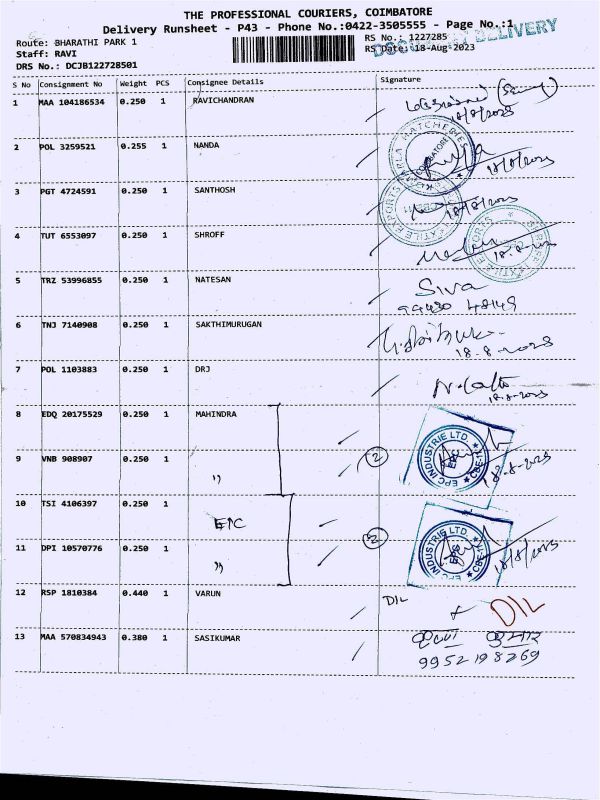 THE PROFESSIONAL COURIERS, COIMBATORE
Delivery Runsheet - P43 - Phone No.:0422-3505555 - Page No.:1
Route: BHARATHI PARK 1
RS No.: 1227285
DELIVERY
Staff: RAVI
RS Date: 18-Aug-2023
DRS No.: DCJB122728501
S No Consignment No Weight PCS Consignee Details Signature
1 MAA 104186534 0.250 1 RAVICHANDRAN
18/8/2023
2 POL 3259521 0.255 1 NANDA
18/8/2023
3 PGT 4724591 0.250 1 SANTHOSH
18/8/2023
4 TUT 6553097 0.250 1 SHROFF
18.8.2023
5 TRZ 53996855 0.250 1 NATESAN Siva
6 TNJ 7140908 0.250 1 SAKTHIMURUGAN
18.8.2023
7 POL 1103883 0.250 1 DRJ
18.8.2023
8 EDQ 20175529 0.250 1 MAHINDRA
EPC INDUSTRIE LTD. EPC
9 VNB 908907 0.250 1 " 2 18.8.2023
10 TSI 4106397 0.250 1 EPC
EPC INDUSTRIE LTD. EPC
11 DPI 10570776 0.250 1 " 2 18/8/2023
12 RSP 1810384 0.440 1 VARUN DIL DIL
13 MAA 570834943 0.380 1 SASIKUMAR
9952198269